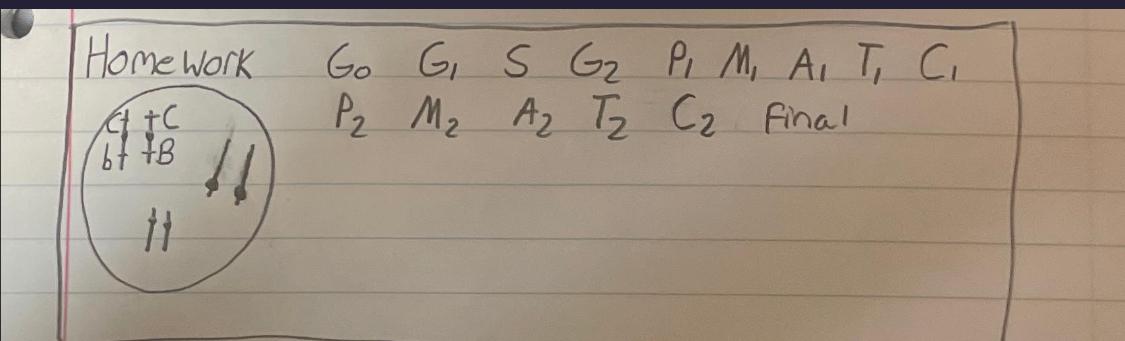 Homework G₀ G₁ S G₂ P₁ M₁ A₁ T₁ C₁
P₂ M₂ A₂ T₂ C₂ Final
C C
b B